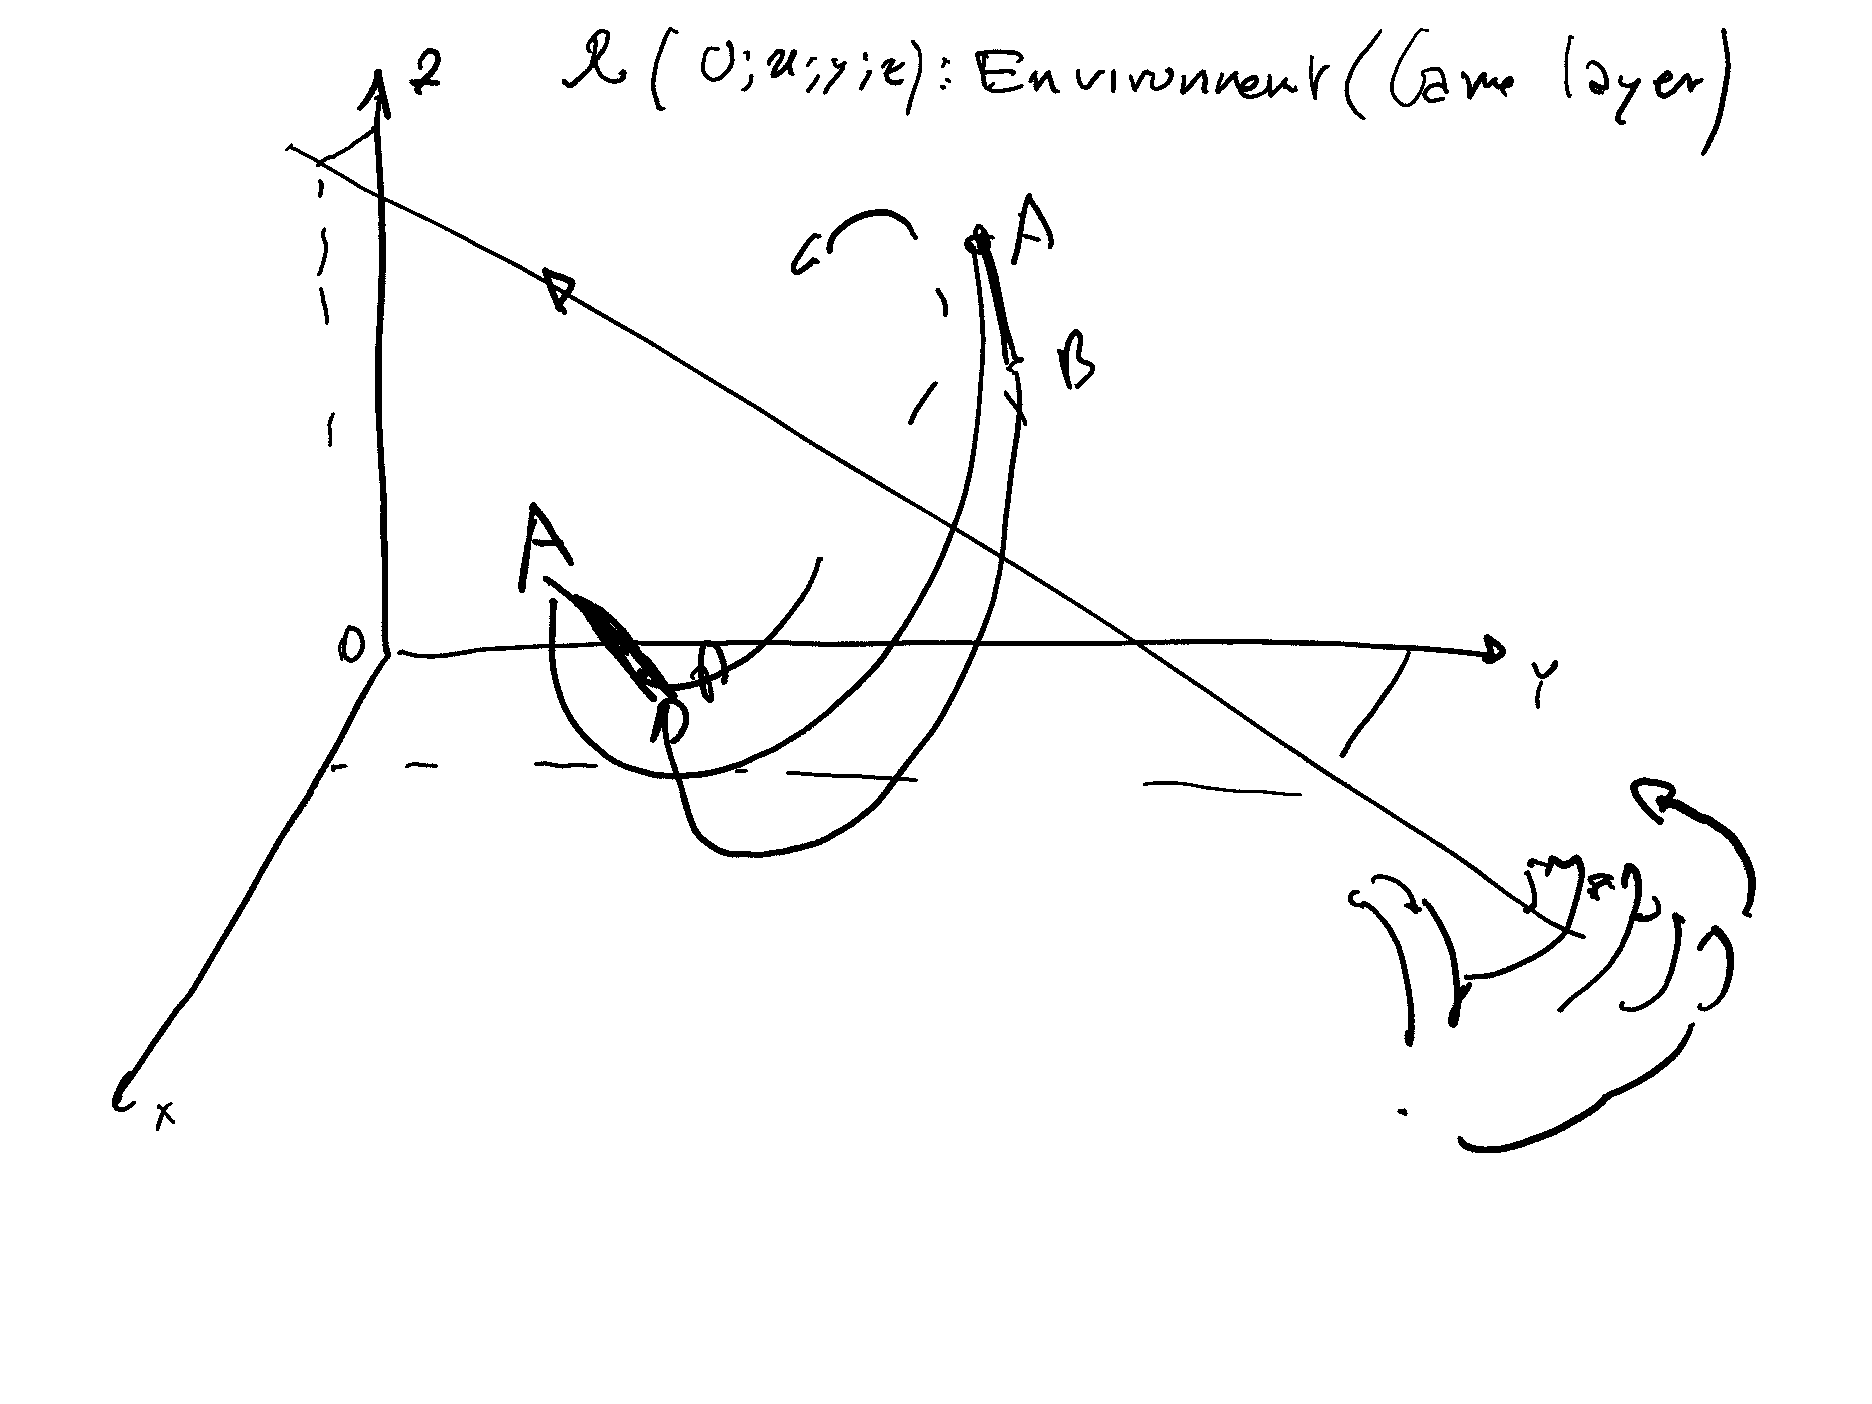 Z
R(O;x;y;z): Environment (Game layer)
A
B
A
O
B
Y
x